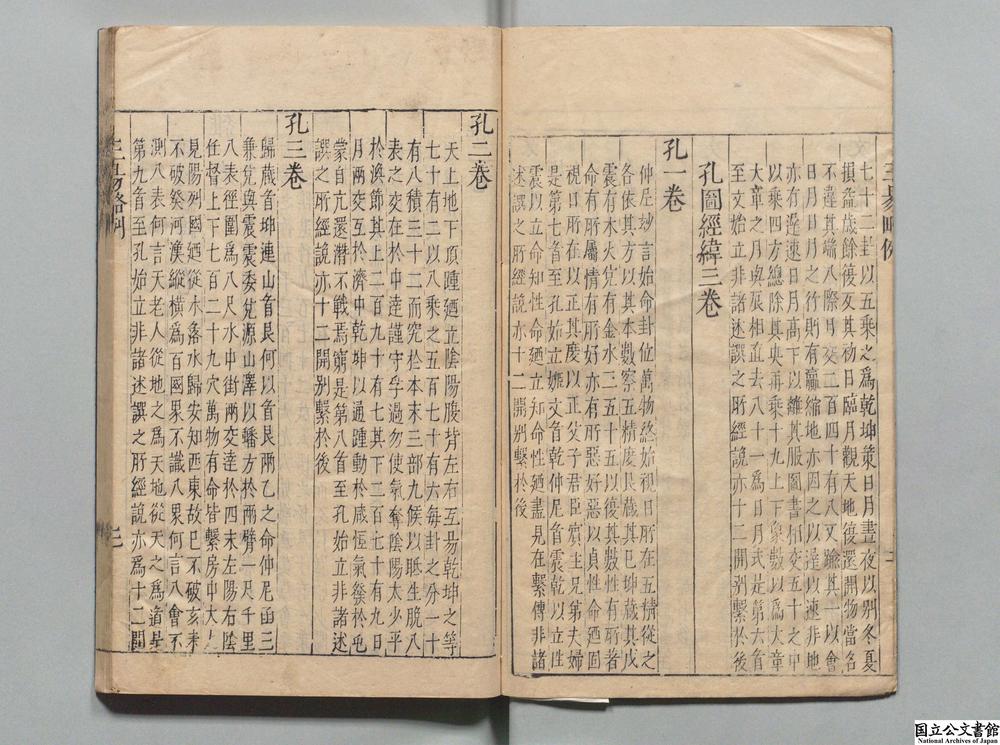 七十二卦以五乘之爲乾坤策日月晝夜以別冬夏
損益歲餘後爻其初日臨月觀天地後還開物當名
不違其端八際日交二百四十有八又踰其一以會
日月日月之行則有贏縮地亦因之以達以速非地
亦有遲速日月高下以離其服圖書相交五十之中
以乘四方總除其央再乘十九上下象數以爲大章
大章之月與辰相直去八十一爲日月式是第六首
至文始立非諸述譔之所經說亦十二開別繫於後
孔圖經緯三卷
孔一卷
仲尼玅言始命卦位萬物終始視日所在五精從之
各依其方以其本數察五精度艮藏其巳坤藏其戊
震有木火兌有金水二五十五以復其數性有所著
命有所屬情有所好亦有所惡好惡以貞性命廼固
視日所在以正其度以正父子君臣賓主兄弟夫婦
是第七首至孔始立嫄文首乾仲尼首震乾以立性
震以立命知性命廼立知命性廼盡見在繫傳非諸
述譔之所經說亦十二開別繫於後
孔二卷
天上地下頂踵廼立陰陽腹背左右互易乾坤之等
七十有二以八乘之五百七十有六每卦之分一十
有八積三十二而究於本末三部九候以眡生脫八
表之交在於中逵謹守孚過勿使氣奪陰陽太少平
於渙節其上二百九十有七其下二百七十有九日
月兩交互於濟中乾坤以通踵動於咸恆氣發於屯
蒙自亢還潛不戰焉窮是第八首至孔始立非諸述
譔之所經說亦十二開別繫於後
孔三卷
歸藏首坤連山首艮何以首艮兩乙之命仲尼函三
兼兌與震震委兌源山澤以蟠方於兩臂一尺千里
八表徑圍爲八尺水中街兩交逵於四末左陽右陰
任督上下七百二十九穴萬物有命皆繫房中大上
見陽列國廼從木落水歸安知西東故巳不破亥耒
不破癸河漢縱橫爲百國果不識八果何言八會不
測八表何言天老人從地之爲天地從天之爲道是
第九首至孔始立非諸述譔之所經說亦爲十二開
三易略例
國立公文書館
National Archives of Japan